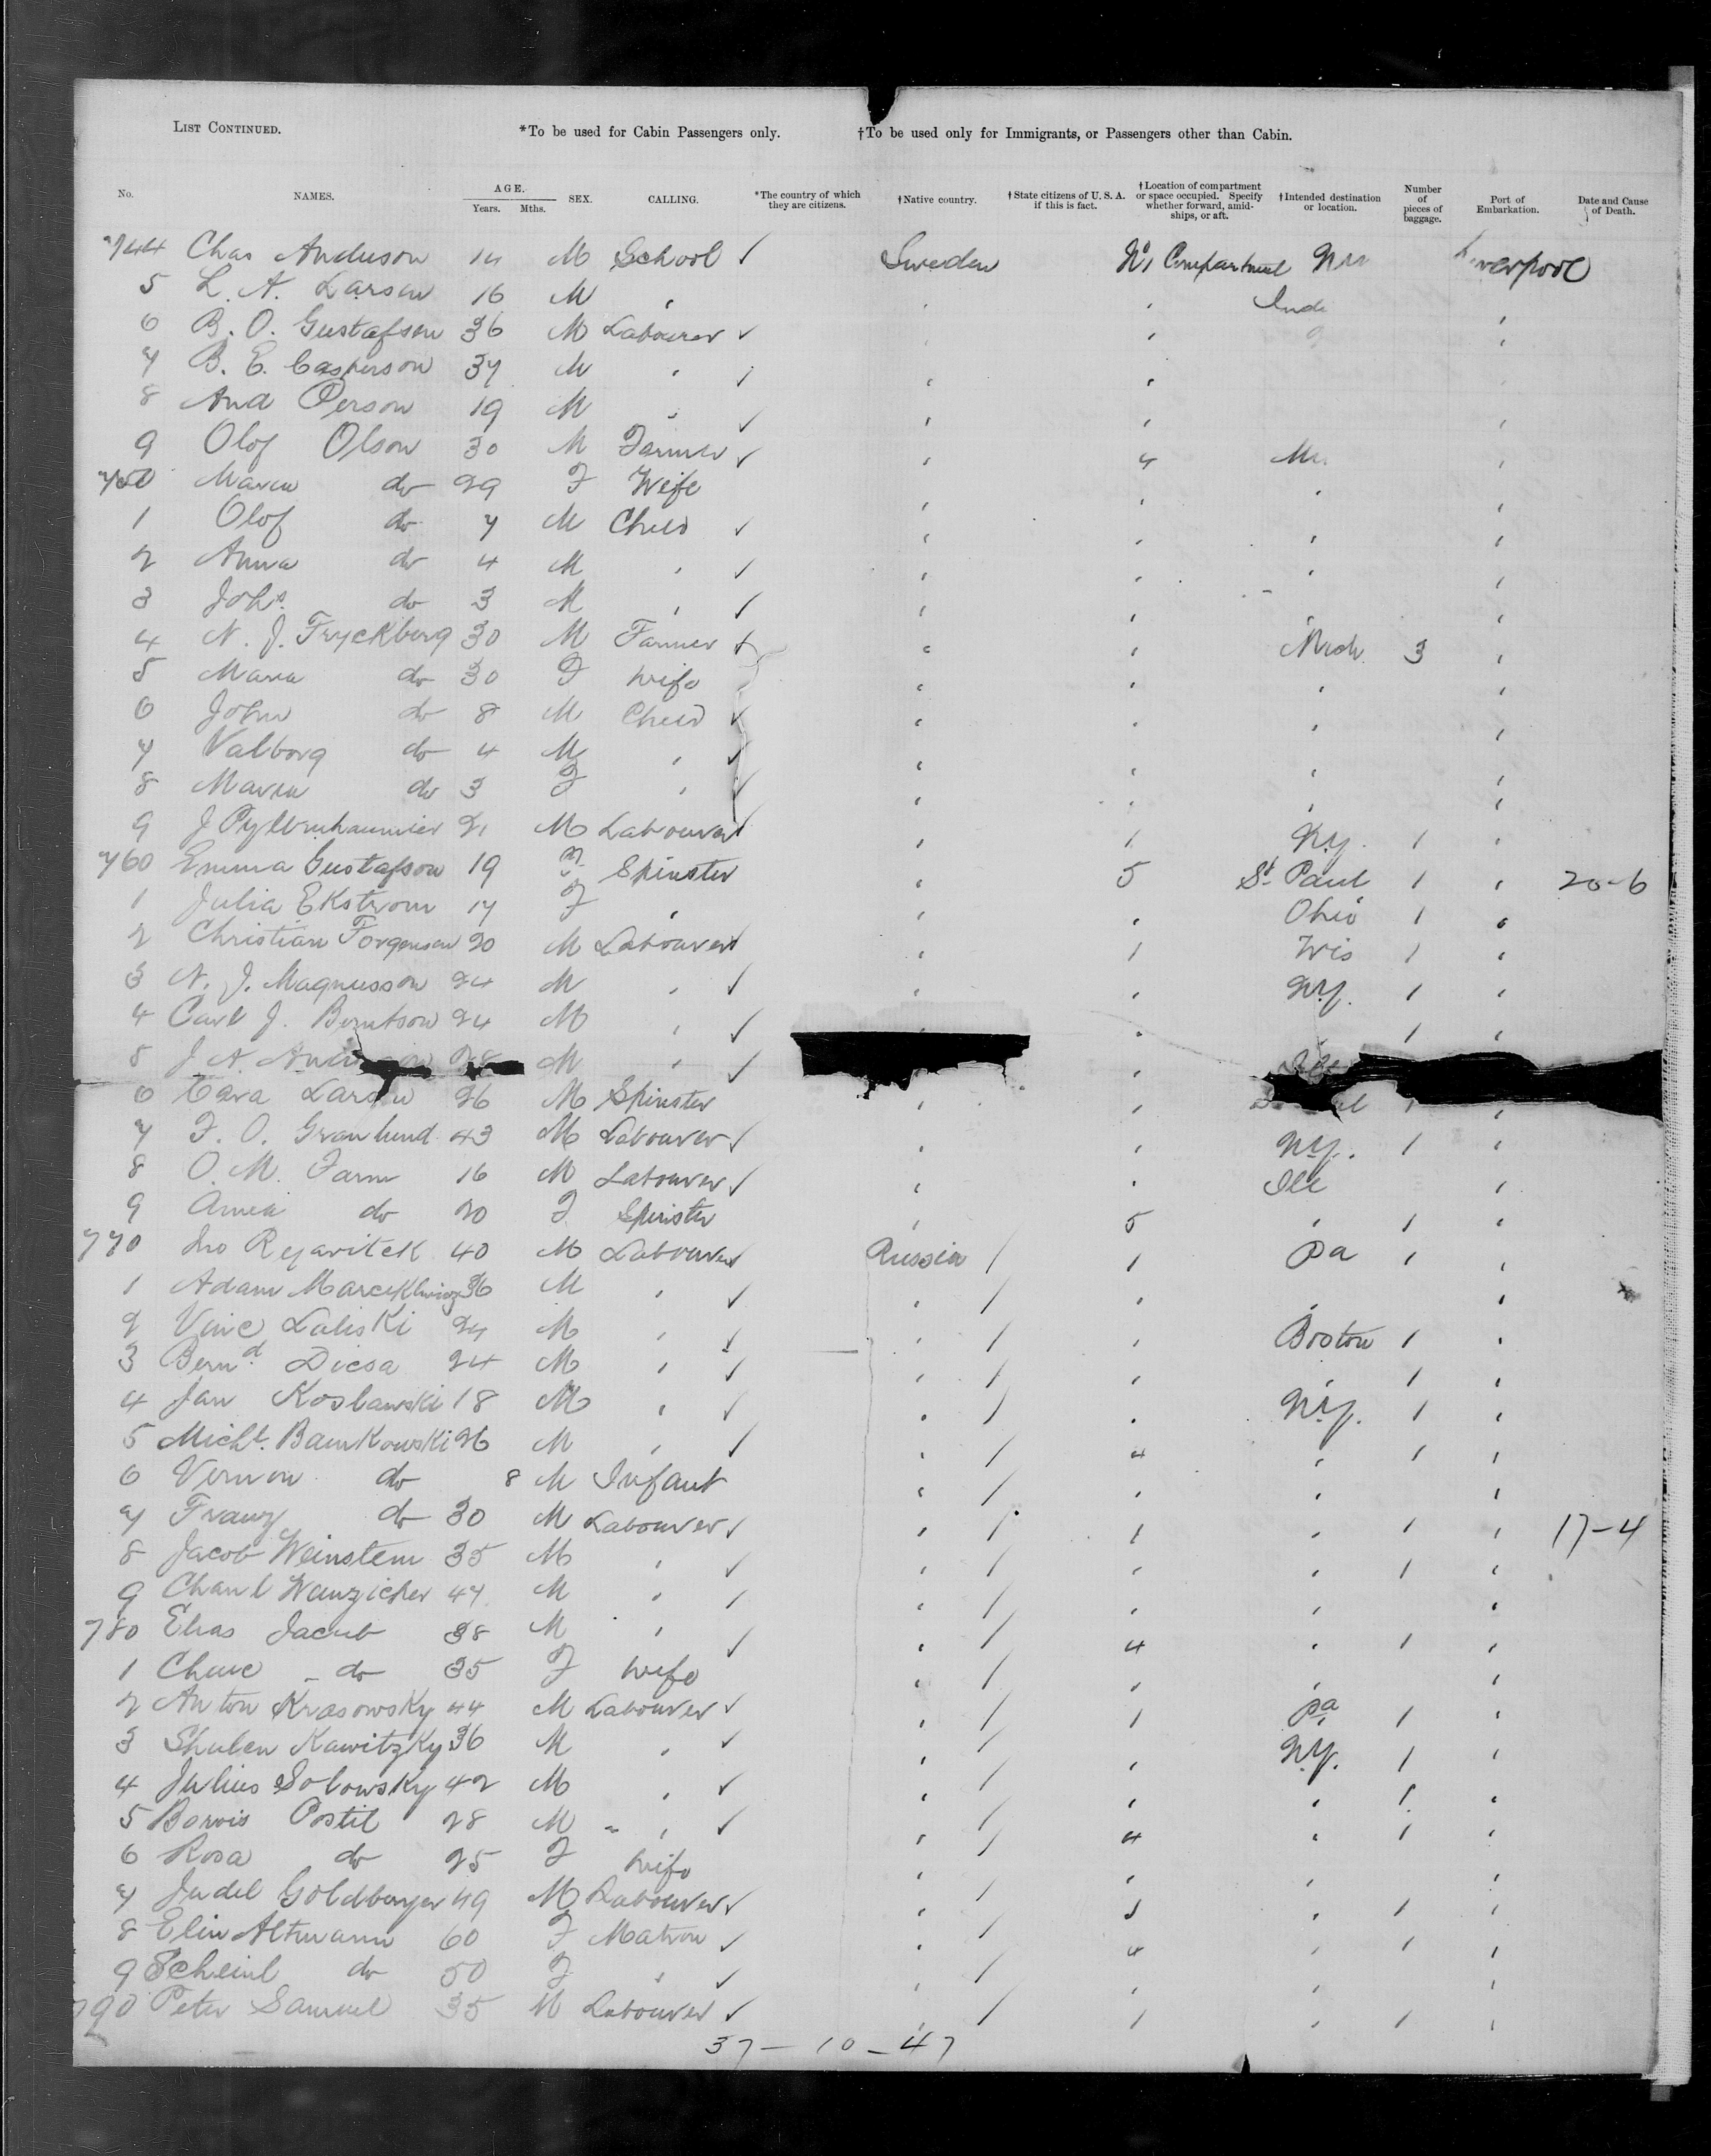 LIST CONTINUED. *To be used for Cabin Passengers only. †To be used only for Immigrants, or Passengers other than Cabin.
No. NAMES. AGE. Years. Mths. SEX. CALLING. *The country of which they are citizens. †Native country. †State citizens of U. S. A. if this is fact. †Location of compartment or space occupied. Specify whether forward, amidships, or aft. †Intended destination or location. Number of pieces of baggage. Port of Embarkation. Date and Cause of Death.
744 Chas Anderson 14 M School ✓ Sweden No 1 Compartment Liverpool
5 L. A. Larson 16 M " " " Ind "
6 B. O. Gustafson 36 M Labourer ✓ " " "
7 B. E. Casperson 37 M " ✓ " "
8 And Person 19 M " ✓ " " "
9 Olof Olson 30 M Farmer ✓ " 4 "
750 Maria do 29 F Wife " " " "
1 Olof do 7 M Child ✓ " " " "
2 Anna do 4 M " ✓ " " " "
3 Johs do 3 M " ✓ " " " "
4 N. J. Fryckberg 30 M Farmer " " Mich 3 "
5 Maria do 30 F Wife " " " "
6 John do 8 M Child ✓ " " " "
7 Valborg do 4 M " ✓ " " " "
8 Maria do 3 F " ✓ " " " "
9 J 21 M Labourer ✓ " 1 N.Y. 1 "
760 Emma Gustafson 19 Spinster " 5 St. Paul 1 " 20-6
1 Julia Ekstrom 17 F " " " Ohio 1 "
2 Christian Forgensen 20 M Labourer ✓ " 1 Wis 1 "
3 N. J. Magnusson 24 M " ✓ " " N.Y. 1 "
4 Carl J. Berntson 24 M " ✓ " " 1 "
5 J. A. 28 M " ✓ "
6 Larson 26 M Spinster " " 1 "
7 F. O. Granlund 43 M Labourer ✓ " " N.Y. 1 "
8 O. M. Farm 16 M Labourer ✓ " " Ill "
9 do 20 F Spinster " 5 " 1 "
770 Jno Rejavitek 40 M Labourer ✓ Russia / 1 Pa 1 "
1 Adam 36 M " ✓ " / " " "
2 Vinc Laliski 24 M " ✓ " / " Boston 1 "
3 Bernd Diesa 24 M " ✓ " / " " 1 "
4 Jan Koslawski 18 M " ✓ " / " N.Y. 1 "
5 Michl. Bamkowski 26 M " ✓ " / 4 " 1 "
6 Vernon do 8 M Infant " / " " "
7 Franz do 30 M Labourer ✓ " / 1 " 1 " 17-4
8 Jacob Weinstein 35 M " ✓ " / " " 1 "
9 Wanzicker 47 M " ✓ " / " " "
780 Elias Jacub 38 M " ✓ " / 4 " 1 "
1 do 35 F Wife " / " " "
2 Anton Krasowsky 44 M Labourer ✓ " / 1 Pa 1 "
3 Kawitzky 36 M " ✓ " / " N.Y. 1 "
4 Julius Solowsky 42 M " ✓ " / " " 1 "
5 Borris Postil 28 M " ✓ " / 4 " 1 "
6 Rosa do 25 F Wife " " " "
7 Judel Goldberger 49 M Labourer ✓ " / 1 " 1 "
8 Elin Altmann 60 F Matron ✓ " / 4 " 1 "
9 Scheinl do 50 F " ✓ " / " " "
790 Peter Samuel 35 M Labourer ✓ " / 1 " 1 "
37 — 10 — 47